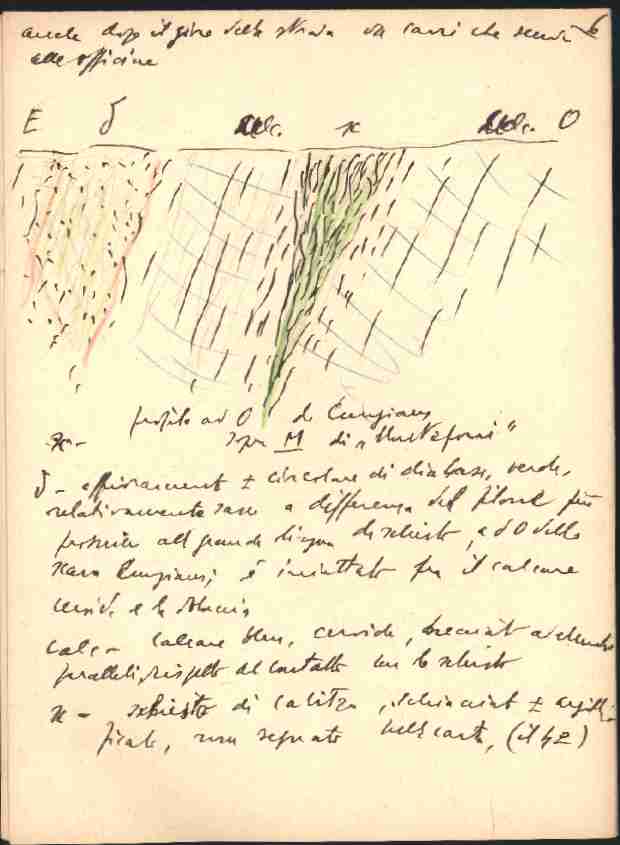 anche dopo il giro della strada da carri che scende
alle officine
6
E δ calc. x calc. O
profilo ad O di Cungiaus
x - sopra M di "Monteponi"
δ - affioramento ± circolare di diabase, verde,
relativamente sano a differenza del filone più
prossimo alla grande lingua di schisto, a d O dello
scavo Cungiaus; è iniettato fra il calcare
ceroide e la
calc - calcare bleu, ceroide, brecciato ad elementi
paralleli, rispetto al contatto con lo schisto
x - schisto di calitza, schiacciato ± argilli-
ficato, non segnato nella carta, (il 42)